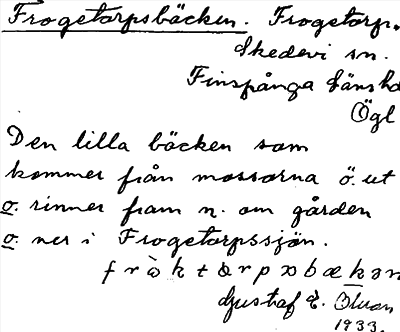 Frogetorpsbäcken. Frogetorp.
Skedevi sn.
Finspånga länshd
Ögl
Den lilla bäcken som
kommer från mossarna ö. ut
o. rinner fram n. om gården
o. ner i Frogetorpssjön.
Gustaf E.
1933.